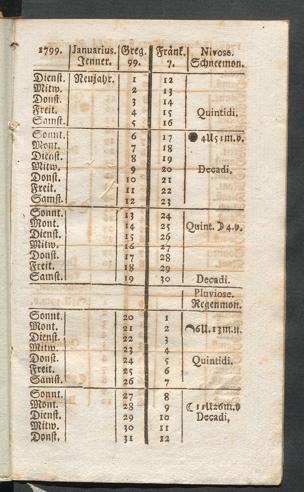 1799. Januarius. Greg. Fränk. Nivose.
Jenner. 99. 7. Schneemon.
Dienst. Neujahr. 1 12
Mitw. 2 13
Donst. 3 14
Freit. 4 15 Quintidi.
Samst. 5 16
Sonnt. 6 17 ● 4U51m.v.
Mont. 7 18
Dienst. 8 19
Mitw. 9 20 Decadi.
Donst. 10 21
Freit. 11 22
Samst. 12 23
Sonnt. 13 24
Mont. 14 25 Quint. ☽ 4.v.
Dienst. 15 26
Mitw. 16 27
Donst. 17 28
Freit. 18 29
Samst. 19 30 Decadi.
Pluviose.
Regenmon.
Sonnt. 20 1
Mont. 21 2 6U.13m.n.
Dienst. 22 3
Mitw. 23 4
Donst. 24 5 Quintidi.
Freit. 25 6
Samst. 26 7
Sonnt. 27 8
Mont. 28 9 ☾ 11U26m.v
Dienst. 29 10 Decadi,
Mitw. 30 11
Donst. 31 12